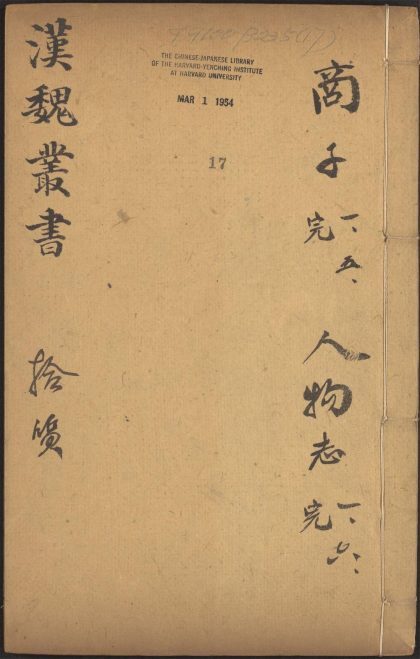 THE CHINESE-JAPANESE LIBRARY
OF THE HARVARD-YENCHING INSTITUTE
AT HARVARD UNIVERSITY
MAR 1 1954
17
商子 一、五、完
人物志 一、六、完
漢魏叢書 拾